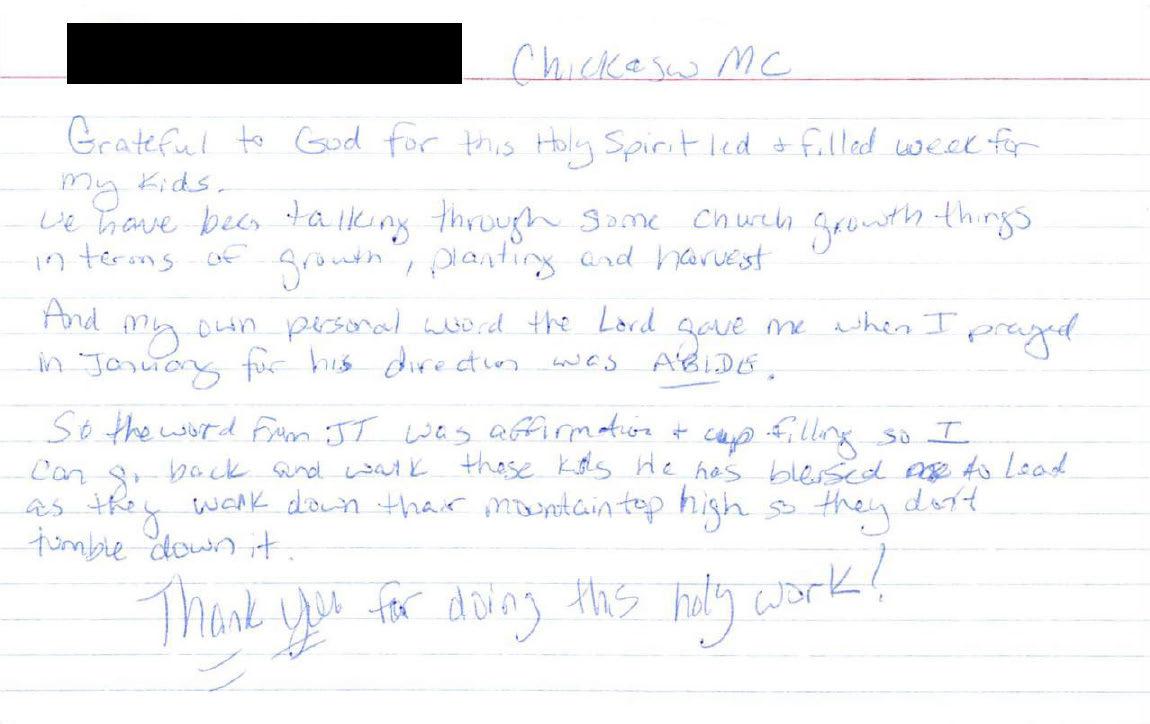 Chickasw MC
Grateful to God for this Holy Spirit led + filled week for
my kids.
We have been talking through some church growth things
in terms of growth, planting and harvest
And my own personal word the Lord gave me when I prayed
in January for his direction was ABIDE.
So the word from JT was affirmation + cup filling so I
can go back and walk these kids He has blessed me to lead
as they walk down their mountaintop high so they don't
tumble down it.
Thank you for doing this holy work!